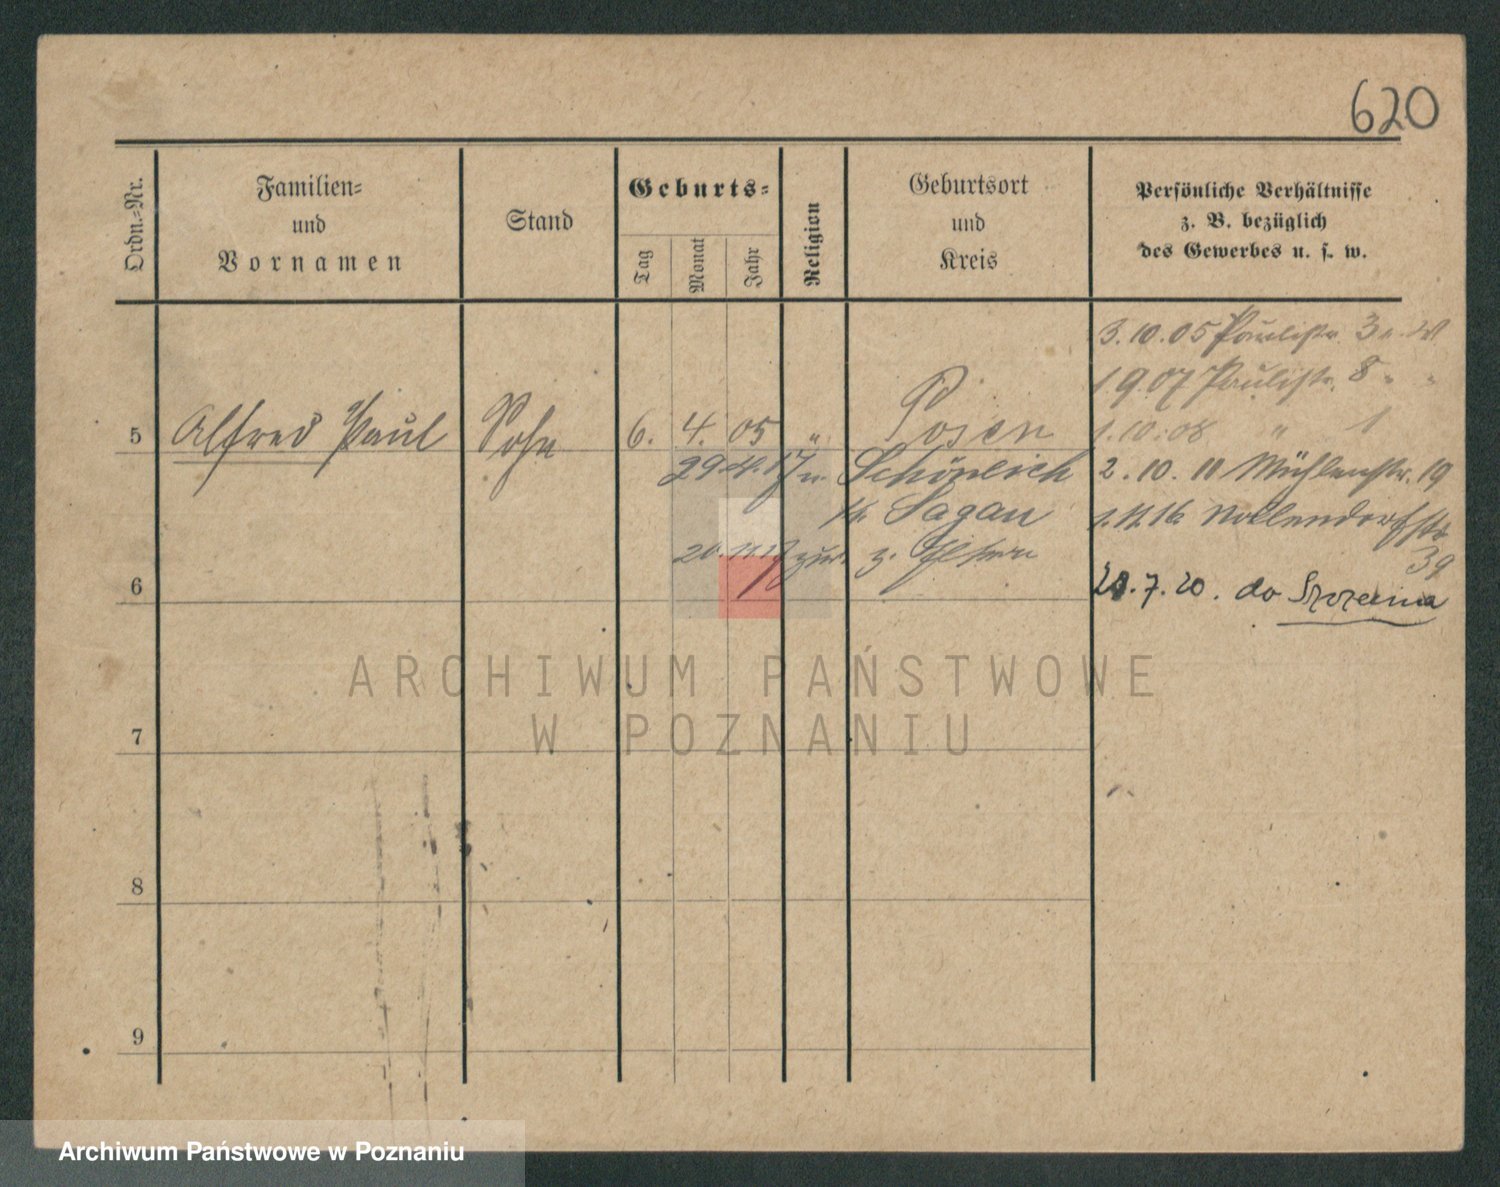 620
Ordn.-Nr.
Familien-
und
Vornamen
Stand
Geburts-
Tag
Monat
Jahr
Religion
Geburtsort
und
Kreis
Persönliche Verhältnisse
z. B. bezüglich
des Gewerbes u. s. w.
3.10.05 Paulistr. 3
1.9.07 Paulistr. 8 " "
5 Alfred Paul Sohn 6. 4. 05 " Posen 1.10.08 " 1
29.4.17 n. Schöneich 2.10.11 Mühlenstr. 19
Kr. Sagan 1.11.16 Nollendorfstr
20.11.17 zur. z. Eltern 39
6
28.7.20. do
7
8
9
ARCHIWUM PAŃSTWOWE
W POZNANIU
Archiwum Państwowe w Poznaniu